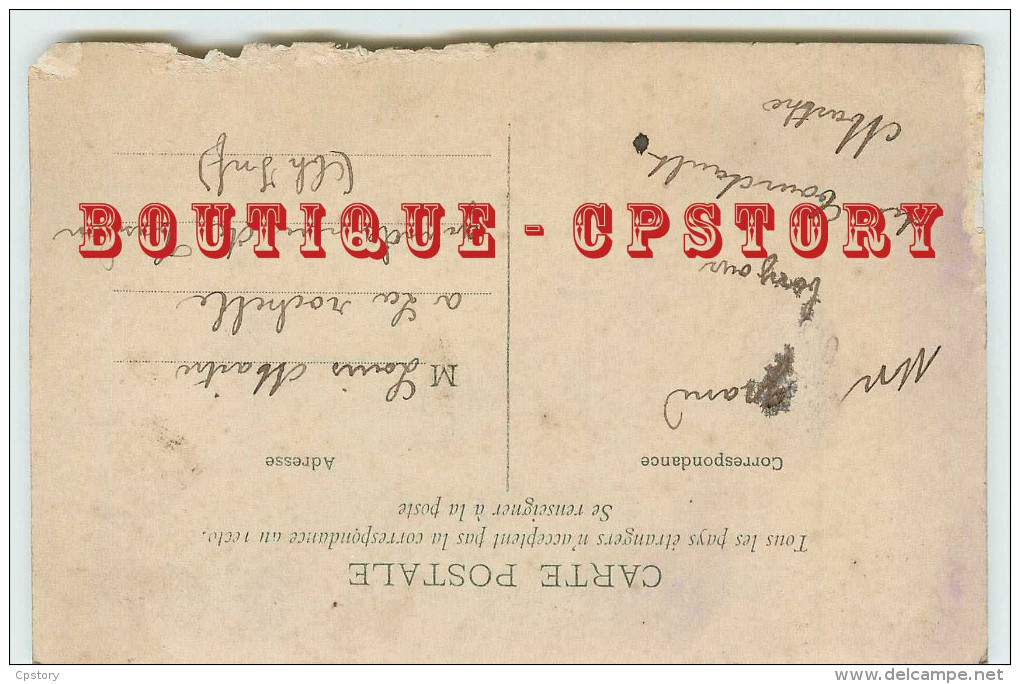 CARTE POSTALE
Tous les pays étrangers n'acceptent pas la correspondance au recto.
Se renseigner à la poste
Correspondance
Adresse
Un grand
bonjour
de
Marthe
M Louis Martin
a La rochelle
(Ch Inf)
BOUTIQUE - CPSTORY
Cpstory
www.delcampe.net